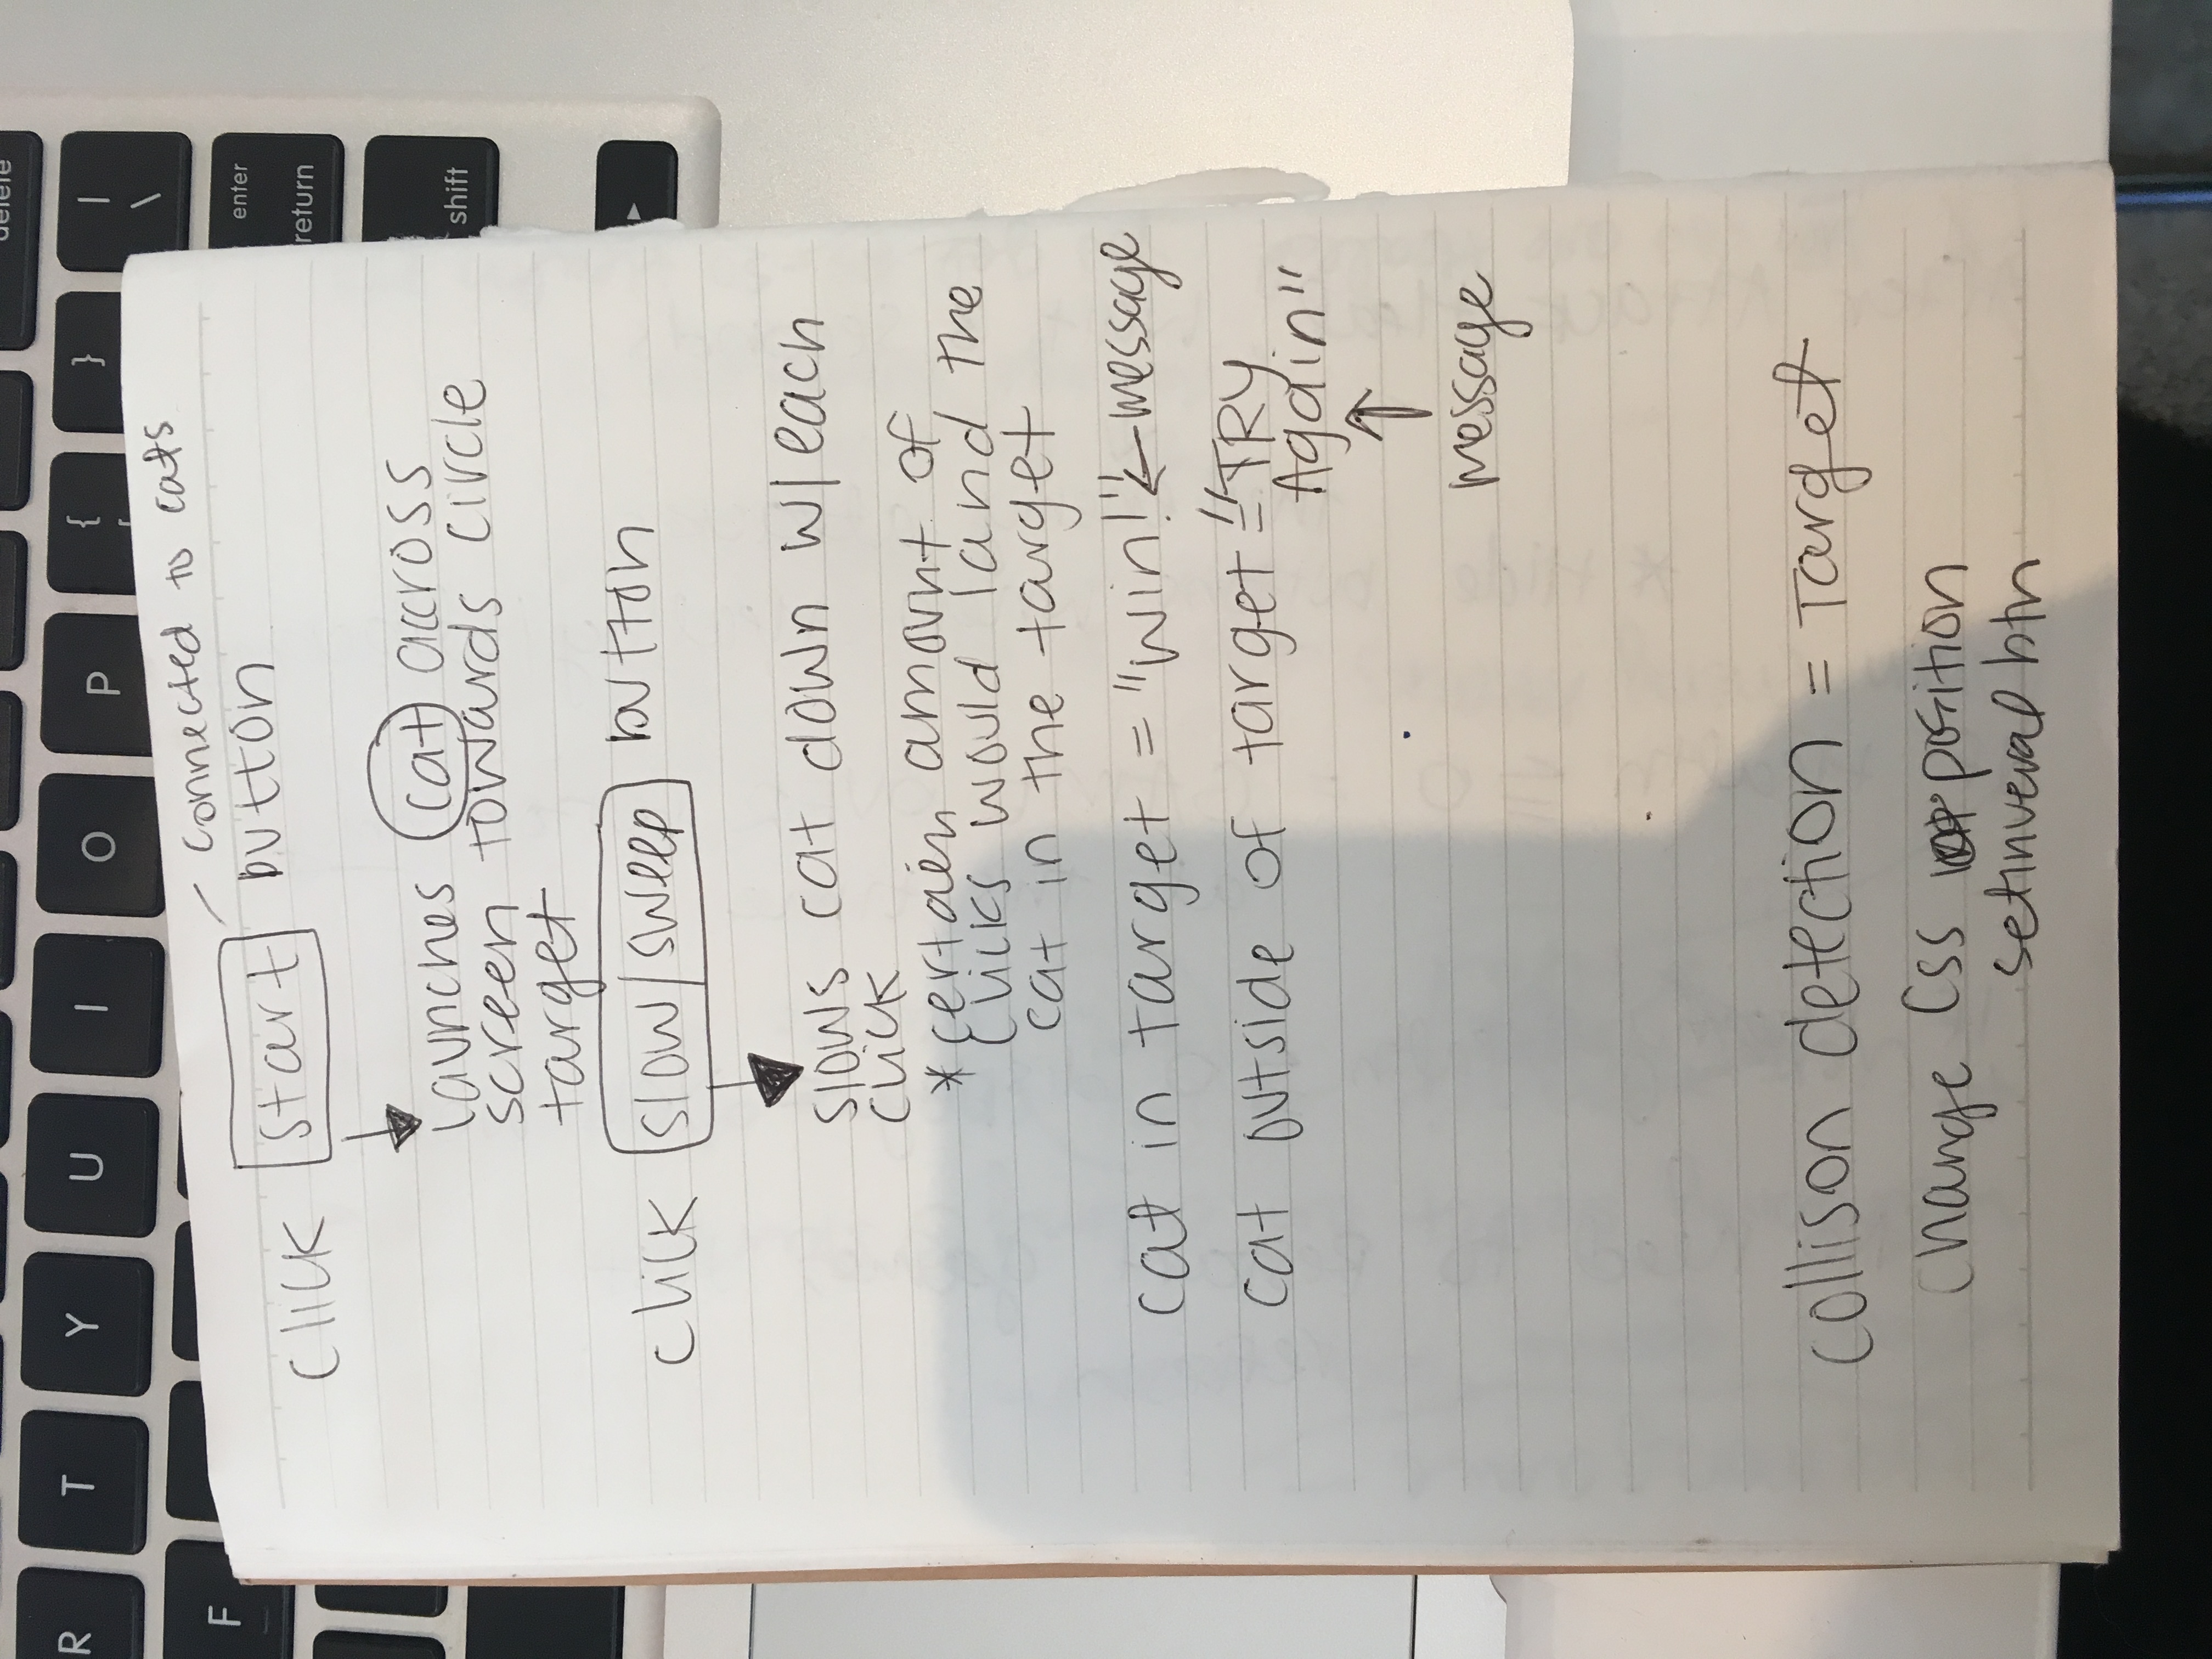 delete
R T Y U I O P { } | \
[
F
enter
return
shift
connected to cats
click start button
launches cat accross
screen towards circle
target
click slow/sweep button
slows cat down w/ each
click
* certain amount of
clicks would land the
cat in the target
cat in target = "Win!" ← message
cat outside of target = "TRY
Again"
↑
message
collison detection = Target
change Css position
setinveral btn